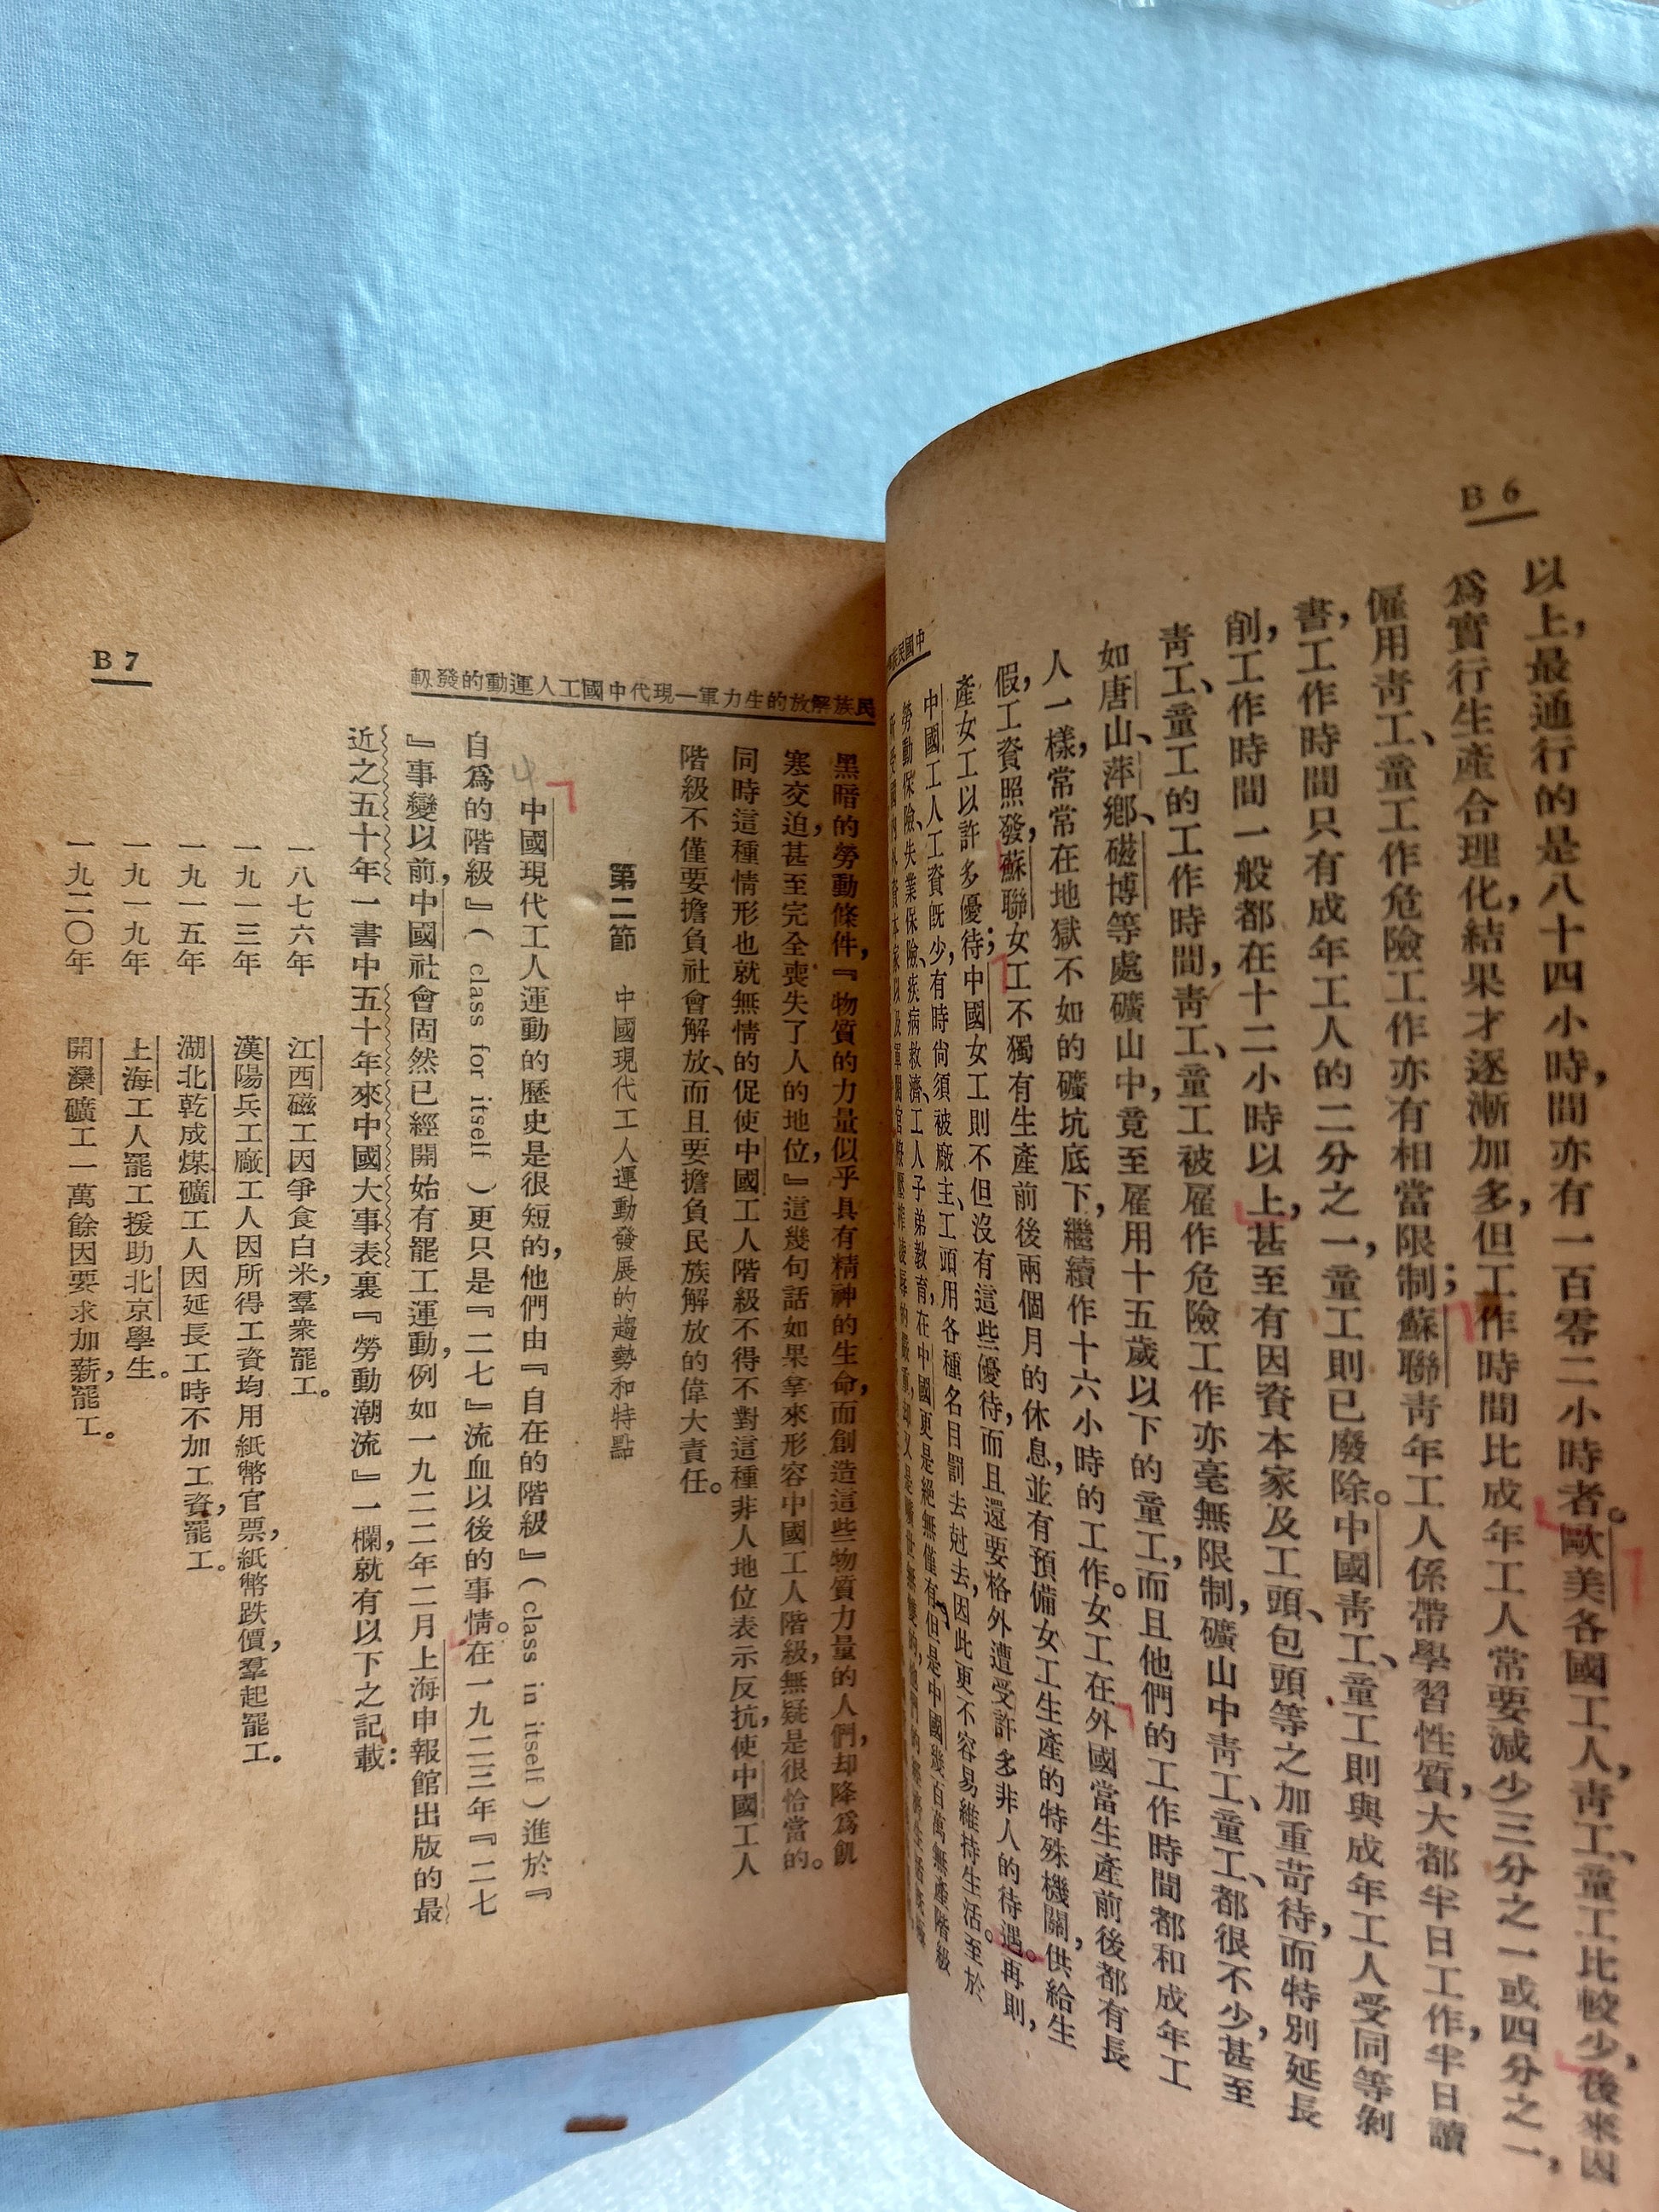 B 6
以上，最通行的是八十四小時，間亦有一百零二小時者。歐美各國工人，青工、童工比較少，後來因
爲實行生產合理化，結果才逐漸加多，但工作時間比成年工人常要減少三分之一或四分之一，
僱用青工、童工作危險工作亦有相當限制；蘇聯青年工人係帶學習性質，大都半日工作，半日讀
書，工作時間只有成年工人的二分之一，童工則已廢除。中國青工、童工則與成年工人受同等剝
削，工作時間一般都在十二小時以上，甚至有因資本家及工頭、包頭等之加重苛待，而特別延長
青工、童工的工作時間，青工、童工被雇作危險工作亦毫無限制，礦山中青工、童工、都很不少，甚至
如唐山、萍鄉、磁博等處礦山中，竟至雇用十五歲以下的童工，而且他們的工作時間都和成年工
人一樣，常常在地獄不如的礦坑底下，繼續作十六小時的工作。女工在外國當生產前後都有長
假，工資照發，蘇聯女工不獨有生產前後兩個月的休息，並有預備女工生產的特殊機關，供給生
產女工以許多優待；中國女工則不但沒有這些優待，而且還要格外遭受許多非人的待遇。再則，
中國工人工資旣少，有時尙須被廠主、工頭用各種名目罰去尅去，因此更不容易維持生活。至於
勞動保險、失業保險、疾病救濟、工人子弟教育，在中國更是絕無僅有，但是中國幾百萬無產階級
中國民族
民族解放的生力軍—現代中國工人運動的發軔
B 7
黑暗的勞動條件，『物質的力量似乎具有精神的生命，而創造這些物質力量的人們，却降爲飢
寒交迫，甚至完全喪失了人的地位，』這幾句話如果拿來形容中國工人階級，無疑是很恰當的。
同時這種情形也就無情的促使中國工人階級不得不對這種非人地位表示反抗，使中國工人
階級不僅要擔負社會解放、而且要擔負民族解放的偉大責任。
第二節　中國現代工人運動發展的趨勢和特點
中國現代工人運動的歷史是很短的，他們由『自在的階級』（class in itself）進於『
自爲的階級』（class for itself）更只是『二七』流血以後的事情。在一九二三年『二七
』事變以前，中國社會固然已經開始有罷工運動，例如一九二二年二月上海申報館出版的最
近之五十年一書中五十年來中國大事表裏『勞動潮流』一欄，就有以下之記載：
一八七六年　江西磁工因爭食白米，羣衆罷工。
一九一三年　漢陽兵工廠工人因所得工資均用紙幣官票，紙幣跌價，羣起罷工。
一九一五年　湖北乾成煤礦工人因延長工時不加工資，罷工。
一九一九年　上海工人罷工援助北京學生。
一九二〇年　開灤礦工一萬餘因要求加薪，罷工。